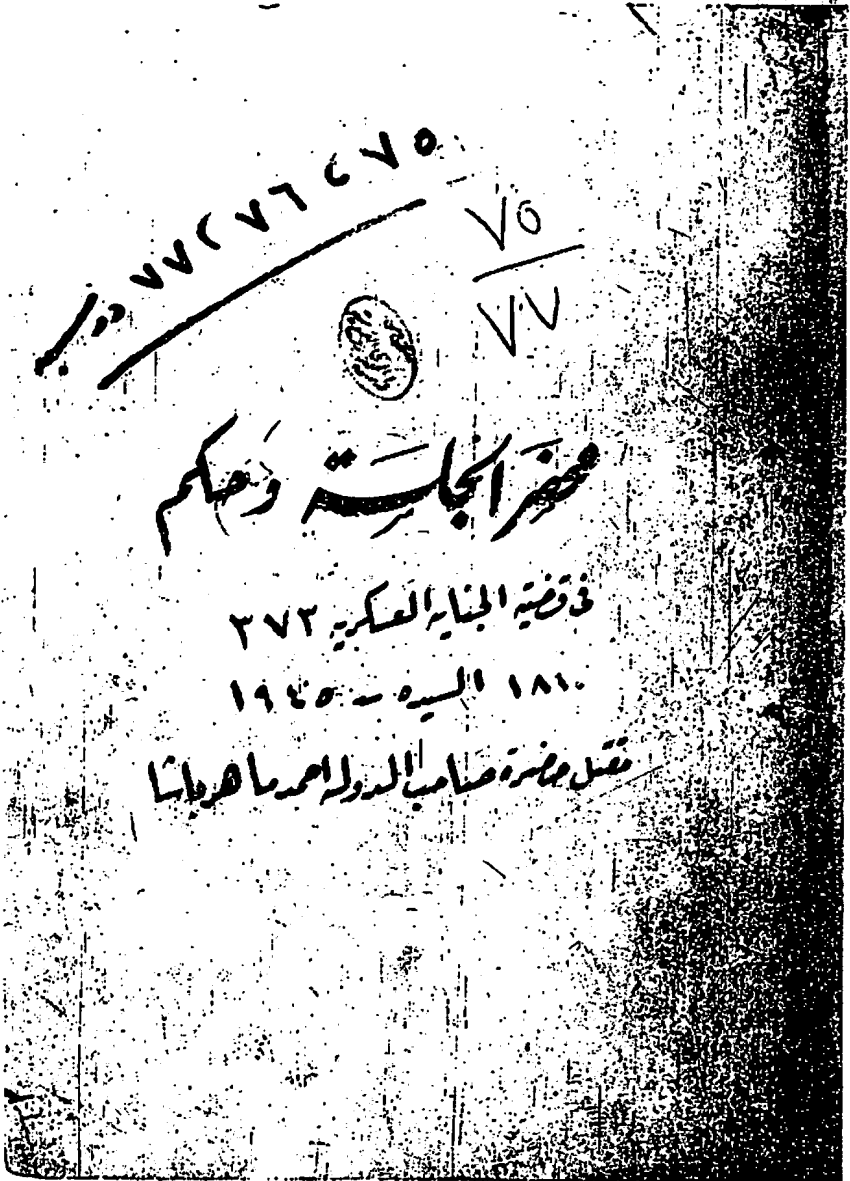 ٧٥ ، ٧٦ ، ٧٧
٧٥
٧٧
محضر الجلسة وحكم
فى قضية الجناية العسكرية ٣٧٣
١٨١٠ السيده سـ ١٩٤٥
مقتل حضرة صاحب الدولة احمد ماهر باشا